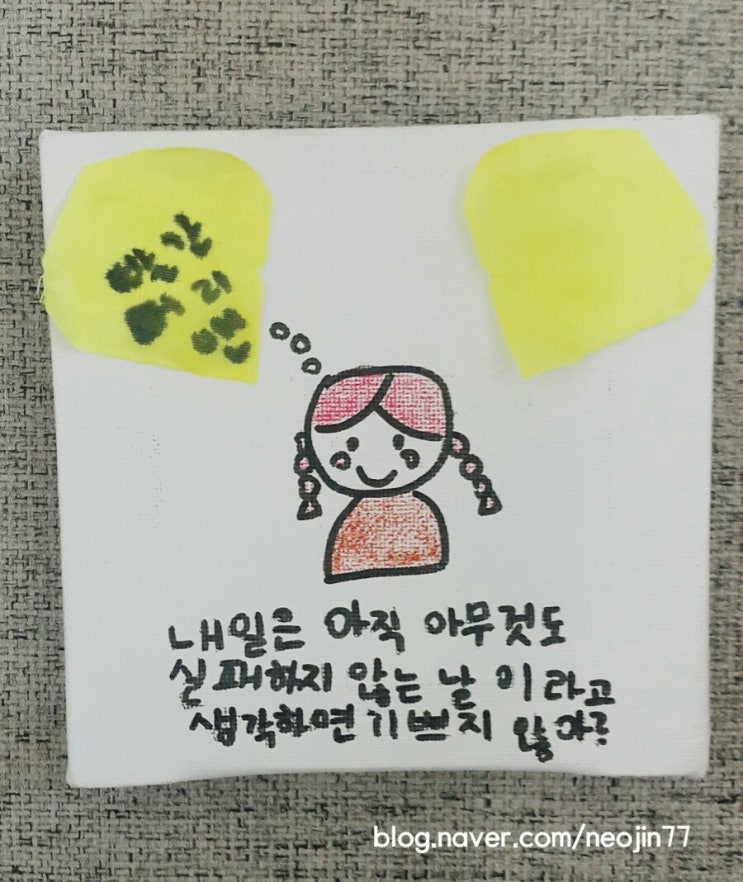 빨간
머리
앤
내일은 아직 아무것도
실패하지 않는 날 이라고
생각하면 기쁘지 않아?
blog.naver.com/neojin77